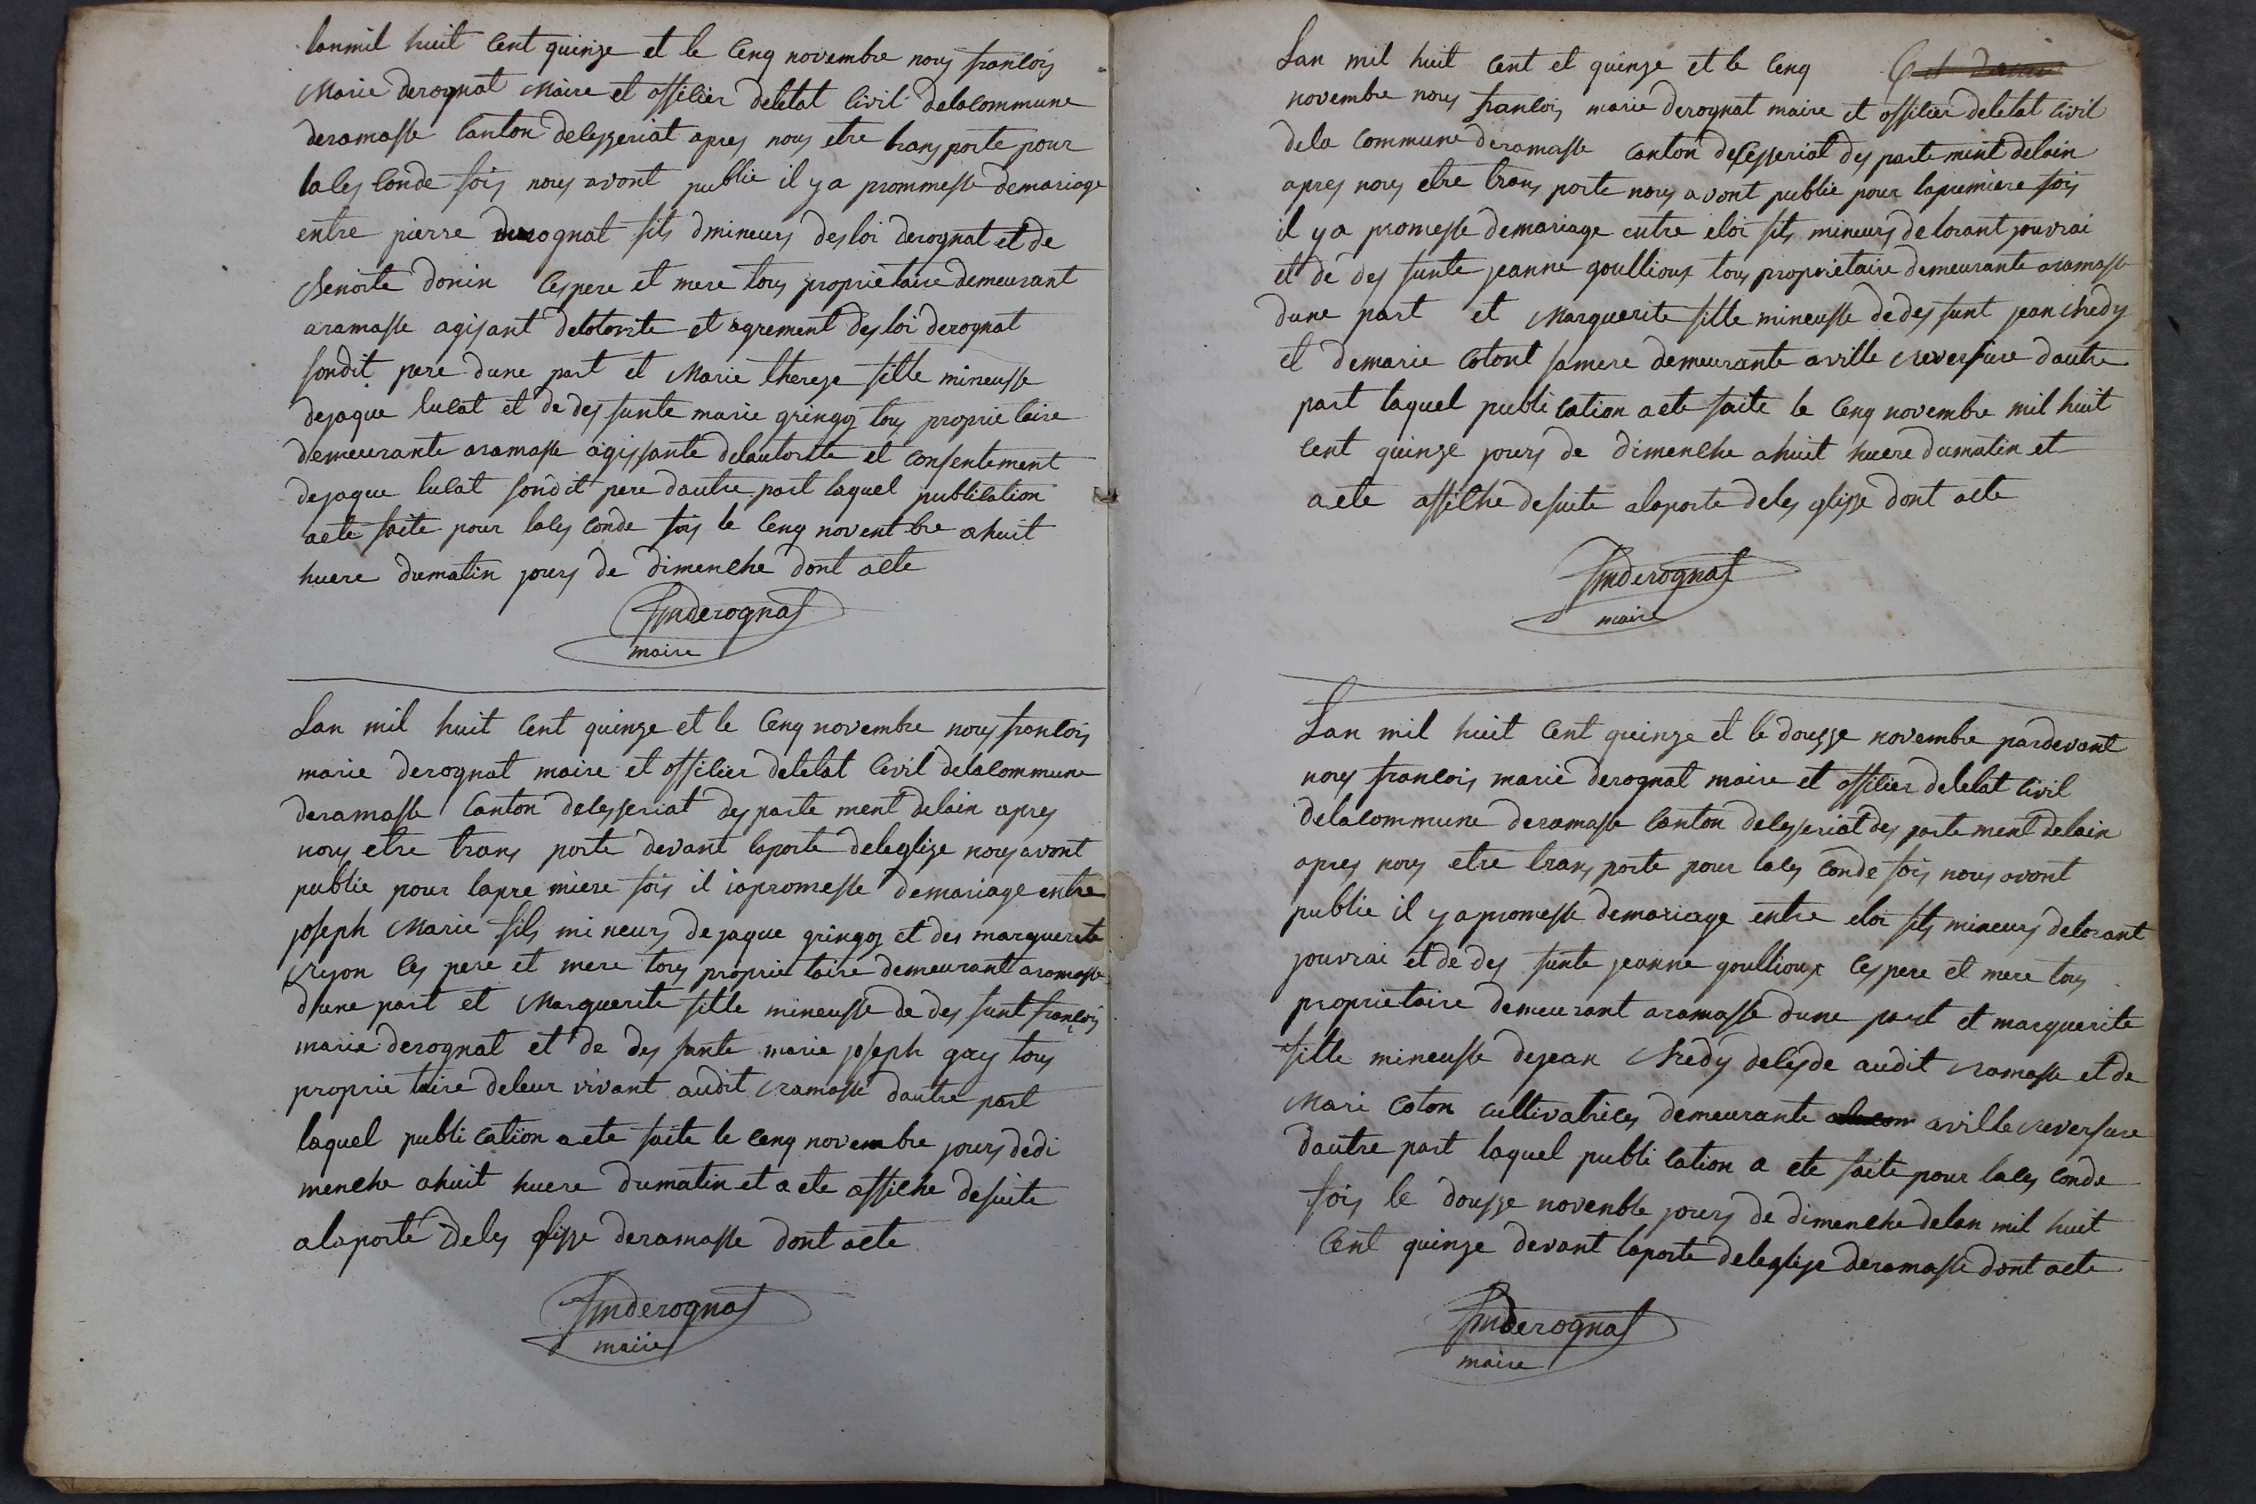 lanmil huit Cent quinze et le Cenq novembre nous francois
Marie derognat Maire et offilier deletat Civil delacommune
deramasse Canton delesseriat apres nous etre trans porte pour
lales Conde fois nous avont publie il y a prommesse demariage
entre pierre derognat fils dmineurs desloi derognat et de
Benoite donin Cespere et mere tous proprietaire demeurant
aramasse agisant delotorite et agrement desloi derognat
sondit pere dune part et Marie thereze fille mineusse
dejaque lucat et de des funte marie gringoz tous proprie taire
demeurante aramasse agissante delautorite et Consentement
dejaque lucat sondit pere dautre part laquel publication
aete faite pour lales conde fois le Cenq novent bre ahuit
huere dumatin jours de dimenche dont acte
fmderognat
maire
Lan mil huit Cent quinze et le Cenq novembre nous francois
marie derognat maire et offilier deletat Civil delacommune
deramasse Canton delesseriat des parte ment delain apres
nous etre trans porte devant laporte deleglize nous avont
publie pour lapre miere fois il iapromesse demariage entre
joseph Marie fils mineurs dejaque gringoz et des marguerite
Myon Ces pere et mere tous proprie taire demeurant aramasse
dune part et Marguerite fille mineusse de des funt françois
marie derognat et de des funte marie joseph gay tous
proprie taire deleur vivant audit ramasse dautre part
laquel publi cation aete faite le cenq novembre jours dedi
menche ahuit huere dumatin et a ete affiche desuite
alaporte deles glisse deramasse dont acte
fmderognat
maire
Lan mil huit Cent et quinze et le Cenq
novembre nous francois marie derognat maire et offilier deletat civil
dela Commune deramasse Canton deCesseriat des parte ment delain
apres nous etre trans porte nous avont publie pour lapremiere fois
il ya promesse demariage entre eloi fils mineurs de lorant jouvrai
et de des funte jeanne goullioux tous proprietaire demeurante aramasse
dune part et Marguerite fille mineusse dedes funt jean Chedy
et demarie Cotont samere demeurante aville reversure dautre
part laquel publi cation aete faite le Cenq novembre mil huit
Cent quinze jours de dimenche ahuit huere dumatin et
aete affiche desuite alaporte deles glisse dont acte
fmderognat
maire
Lan mil huit Cent quinze et le dousse novembre pardevant
nous francois marie derognat maire et offilier deletat Civil
delacommune deramasse Canton delesseriat des parte ment delain
apres nous etre trans porte pour lales Conde fois nous avont
publie il y apromesse demariage entre eloi fils mineurs delorant
jouvrai et de des funte jeanne goullioux Cespere et mere tous
proprietaire demeurant aramasse dune part et marguerite
fille mineusse dejean Chedy deleyde audit ramasse et de
Mari Coton cultivatrices demeurante aville reversure
dautre part laquel publi cation a ete faite pour lales Conde
fois le dousse novenble jours de dimenche delan mil huit
Cent quinze devant laporte deleglize deramasse dont acte
fmderognat
maire